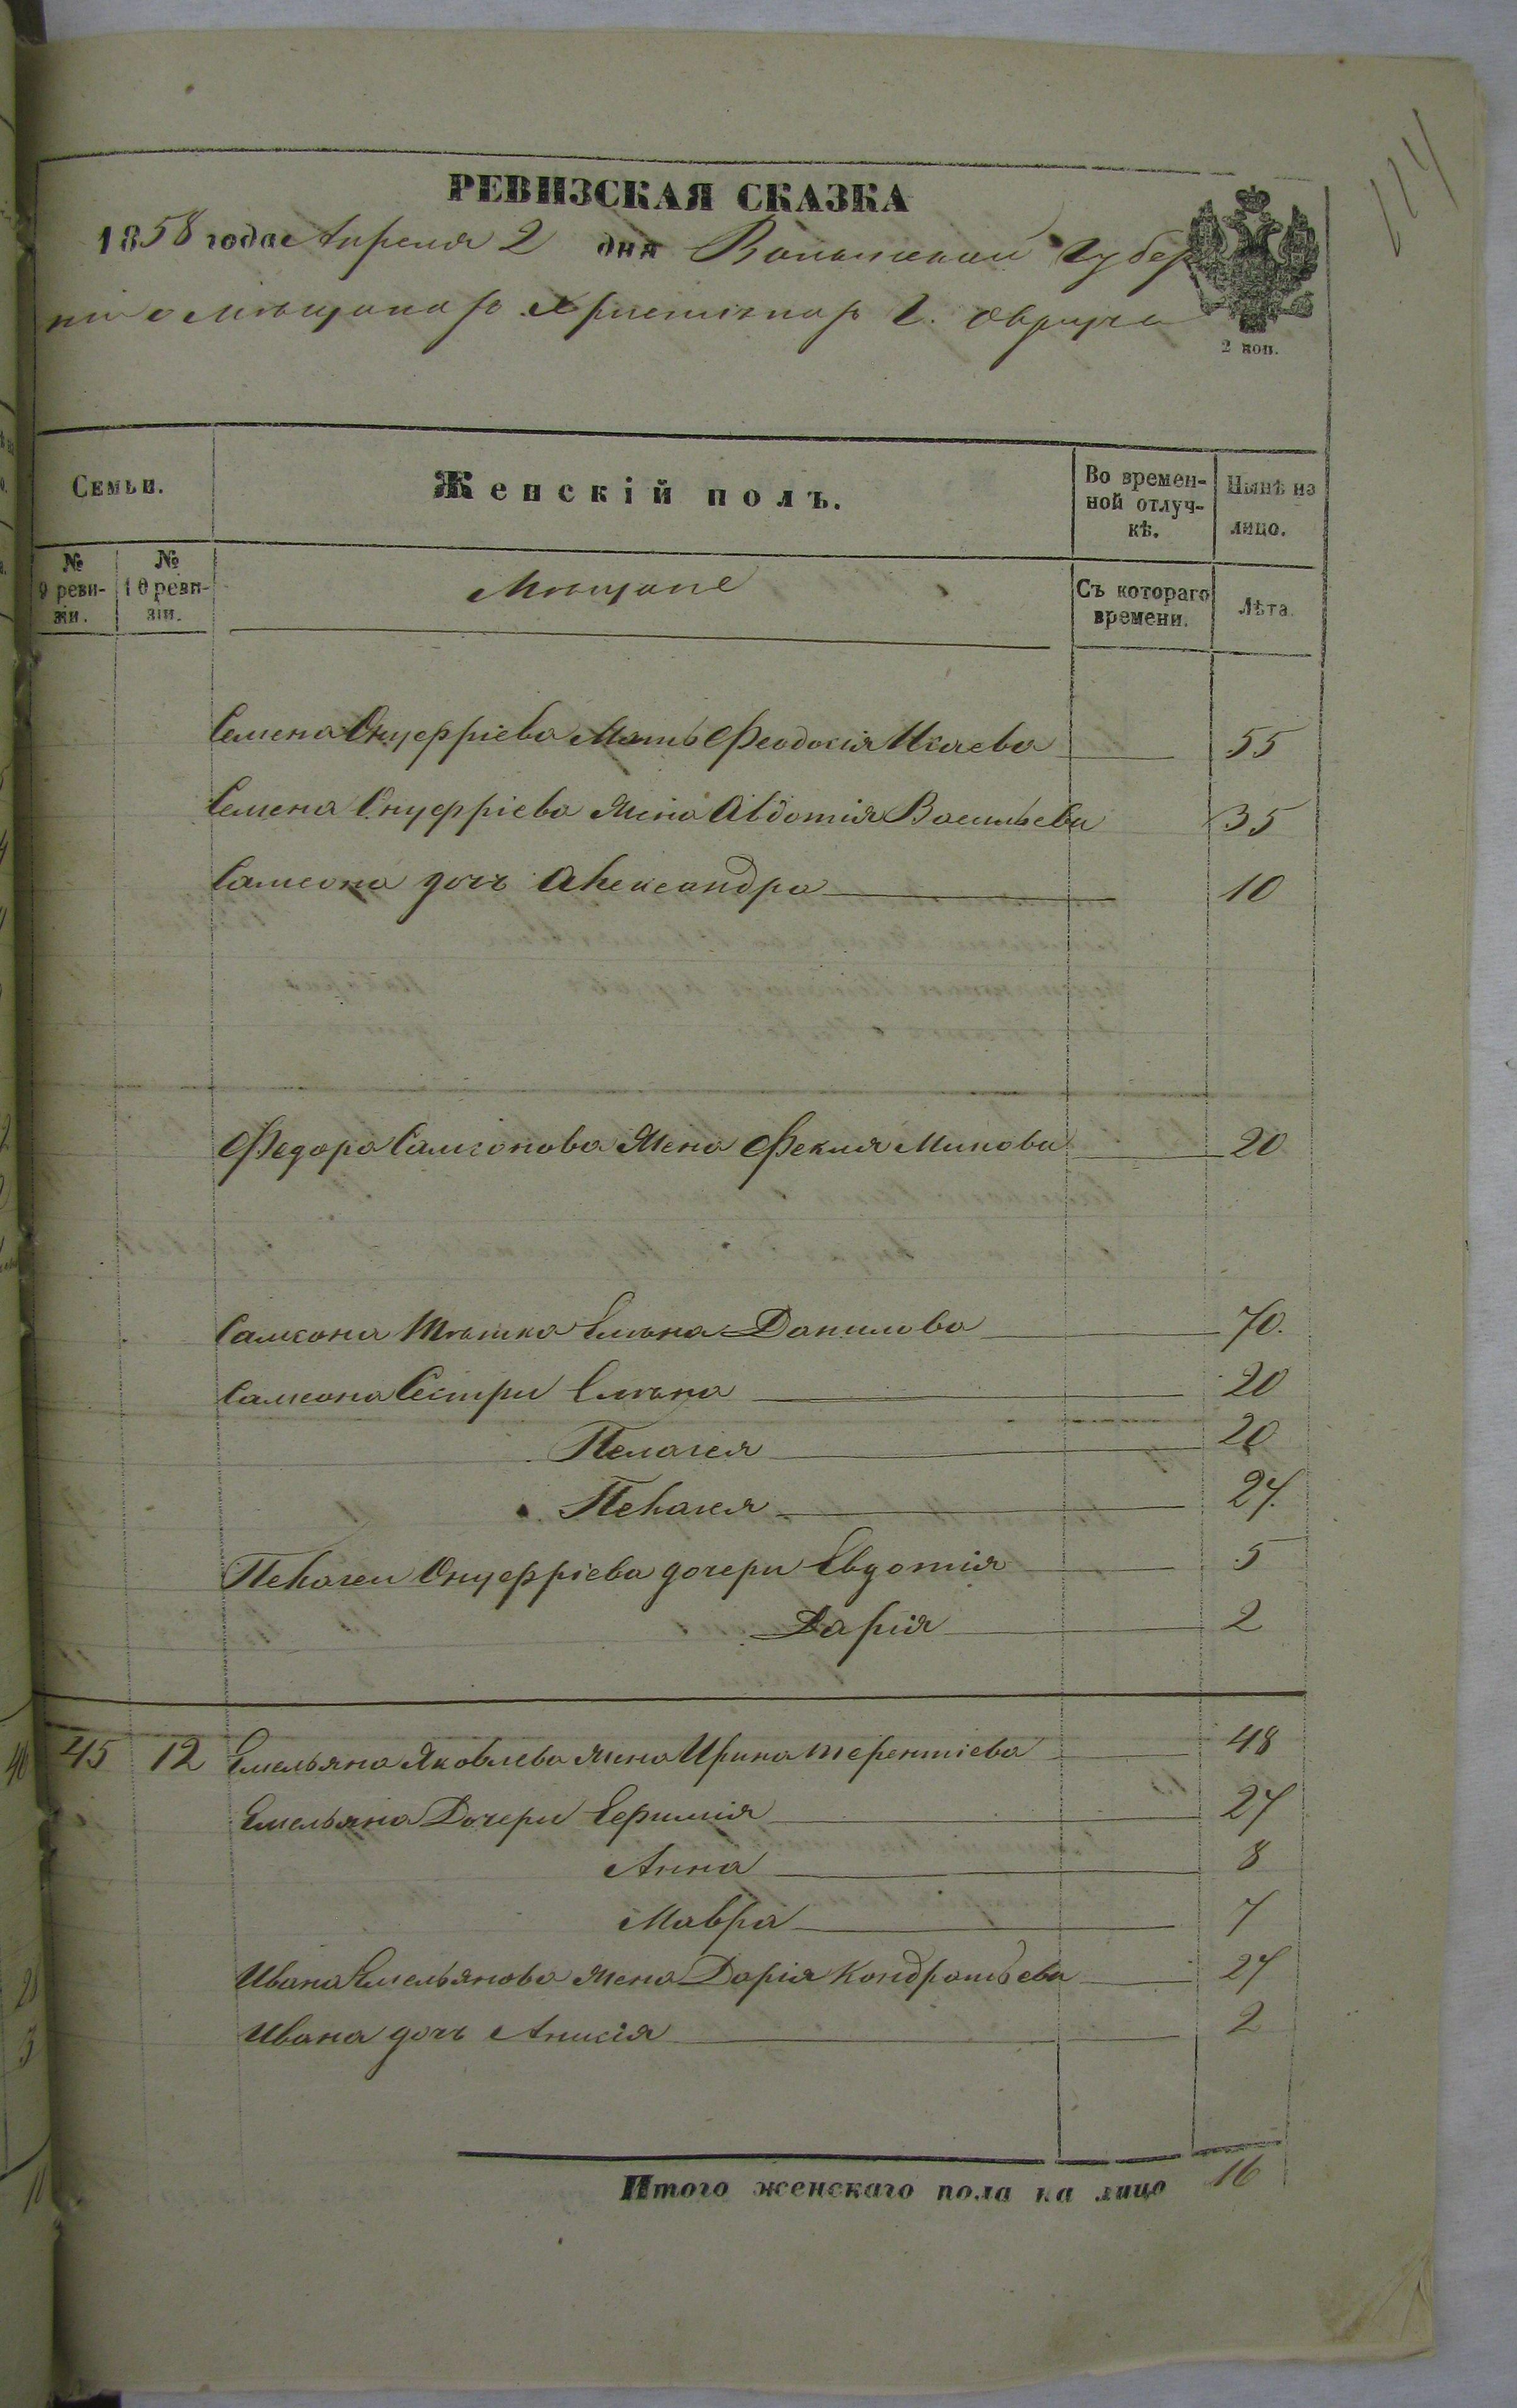 114
РЕВИЗСКАЯ СКАЗКА
1858 года Апреля 2 дня Волынской Губер
ніи о мѣщанахъ Христіанахъ г. Овруча
2 коп.
Семьи.
Женскій полъ.
Во времен-
ной отлуч-
кѣ.
Нынѣ на
лицо.
№
9 реви-
зіи.
№
10 реви-
зіи.
Мѣщане
Съ котораго
времени.
Лѣта.
Семена Онуфріева Мать Феодосія Исаева 55
Семена Онуфріева Жена Авдотія Васильева 35
Самсона дочь Александра 10
Федора Самсонова Жена Фекла Минова 20
Самсона Тѣтка Елѣна Данилова 70.
Самсона Сестри Елѣна 20
Пелагея 20
Пелагея 27.
Пелагеи Онуфріева дочери Евдотія 5
Дарія 2
45 12 Емельяна Яковлева жена Ирина Терентіева 48
Емельяна Дочери Ефимія 27
Анна 8
Мавра 7
Ивана Емельянова жена Дарія Кондратьева 27
Ивана дочь Анисія 2
Итого женскаго пола на лицо 16